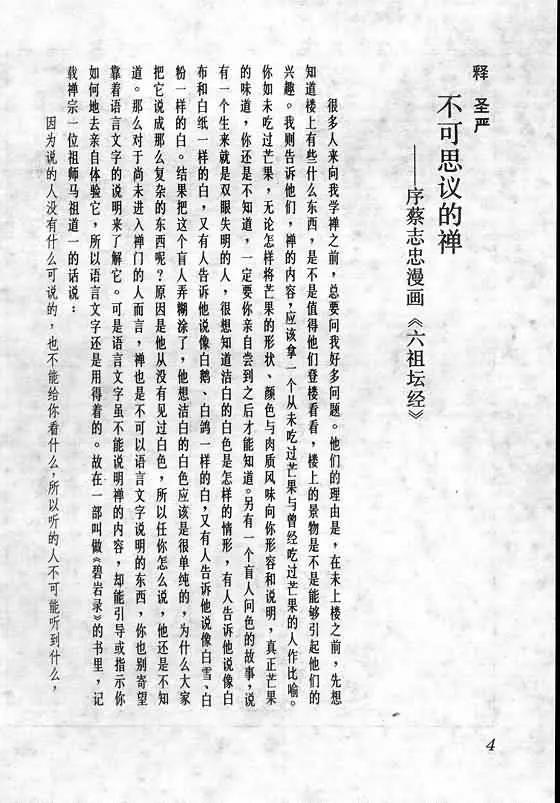 释 圣严
不可思议的禅
——序蔡志忠漫画《六祖坛经》
很多人来向我学禅之前，总要问我好多问题。他们的理由是，在未上楼之前，先想
知道楼上有些什么东西，是不是值得他们登楼看看，楼上的景物是不是能够引起他们的
兴趣。我则告诉他们，禅的内容，应该拿一个从未吃过芒果与曾经吃过芒果的人作比喻。
你如未吃过芒果，无论怎样将芒果的形状、颜色与肉质风味向你形容和说明，真正芒果
的味道，你还是不知道，一定要你亲自尝到之后才能知道。另有一个盲人问色的故事，说
有一个生来就是双眼失明的人，很想知道洁白的白色是怎样的情形，有人告诉他说像白
布和白纸一样的白，又有人告诉他说像白鹅、白鸽一样的白，又有人告诉他说像白雪、白
粉一样的白。结果把这个盲人弄糊涂了，他想洁白的白色应该是很单纯的，为什么大家
把它说成那么复杂的东西呢？原因是他从没有见过白色，所以任你怎么说，他还是不知
道。那么对于尚未进入禅门的人而言，禅也是不可以语言文字说明的东西，你也别寄望
靠着语言文字的说明来了解它。可是语言文字虽不能说明禅的内容，却能引导或指示你
如何地去亲自体验它，所以语言文字还是用得着的。故在一部叫做《碧岩录》的书里，记
载禅宗一位祖师马祖道一的话说：
因为说的人没有什么可说的，也不能给你看什么，所以听的人不可能听到什么，
4